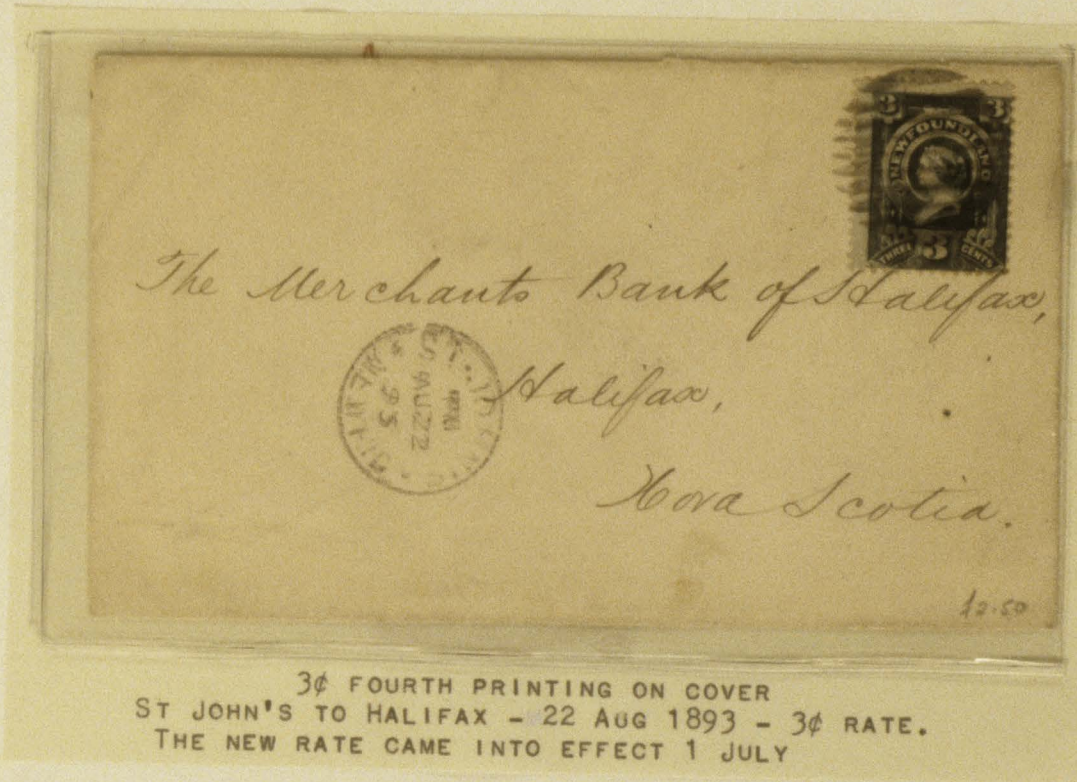 3 3
NEWFOUNDLAND
THREE 3 CENTS
The Merchants Bank of Halifax,
Halifax,
Nova Scotia.
ST. JOHN'S
AU 22
93
$2.50
3¢ FOURTH PRINTING ON COVER
ST JOHN'S TO HALIFAX - 22 AUG 1893 - 3¢ RATE.
THE NEW RATE CAME INTO EFFECT 1 JULY